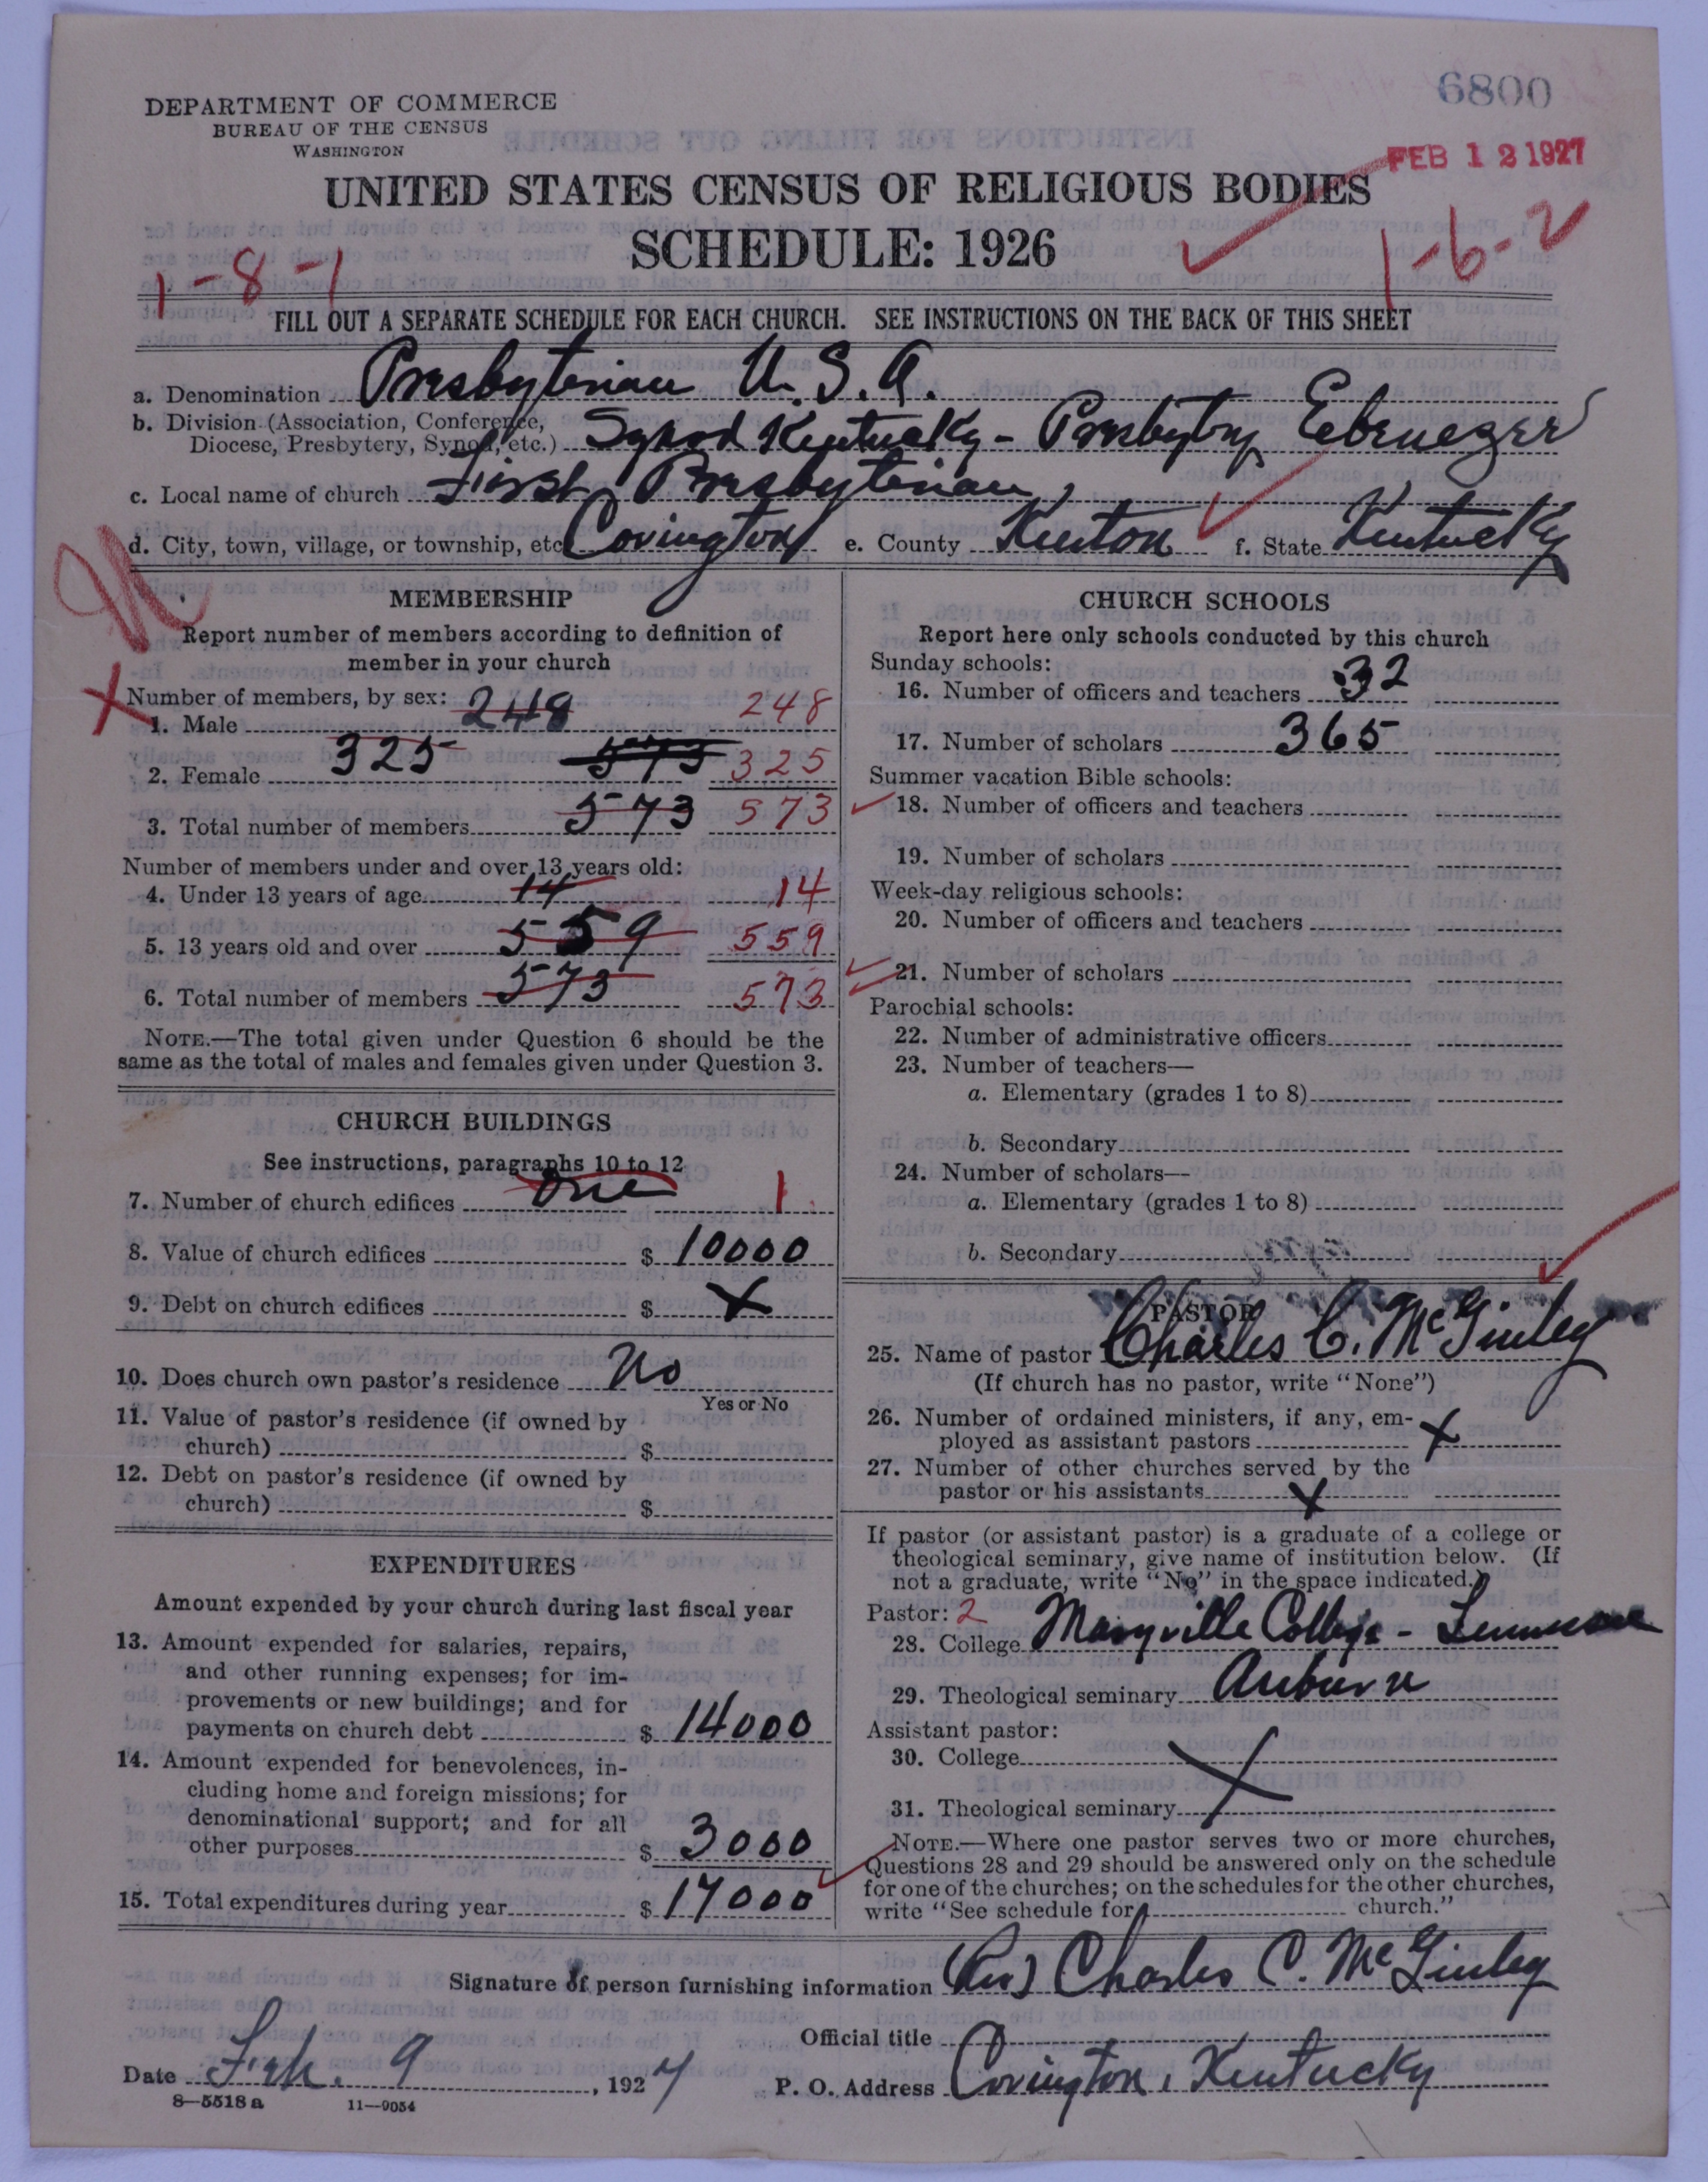 6800
DEPARTMENT OF COMMERCE
BUREAU OF THE CENSUS
WASHINGTON
FEB 12 1927
UNITED STATES CENSUS OF RELIGIOUS BODIES
SCHEDULE: 1926
1-8-1
1-6-2
FILL OUT A SEPARATE SCHEDULE FOR EACH CHURCH. SEE INSTRUCTIONS ON THE BACK OF THIS SHEET
a. Denomination Presbyterian U.S.A.
b. Division (Association, Conference, Diocese, Presbytery, Synod, etc.) Synod Kentucky - Presbytery Ebenezer
c. Local name of church First Presbyterian
d. City, town, village, or township, etc. Covington e. County Kenton f. State Kentucky
MEMBERSHIP
Report number of members according to definition of
member in your church
Number of members, by sex:
1. Male 248 248
2. Female 325 573 325
3. Total number of members 573 573
Number of members under and over 13 years old:
4. Under 13 years of age 14 14
5. 13 years old and over 559 559
6. Total number of members 573 573
NOTE.—The total given under Question 6 should be the
same as the total of males and females given under Question 3.
CHURCH BUILDINGS
See instructions, paragraphs 10 to 12
7. Number of church edifices One 1
8. Value of church edifices $ 10000
9. Debt on church edifices $ X
10. Does church own pastor's residence No
Yes or No
11. Value of pastor's residence (if owned by
church) $
12. Debt on pastor's residence (if owned by
church) $
EXPENDITURES
Amount expended by your church during last fiscal year
13. Amount expended for salaries, repairs,
and other running expenses; for im-
provements or new buildings; and for
payments on church debt $ 14000
14. Amount expended for benevolences, in-
cluding home and foreign missions; for
denominational support; and for all
other purposes $ 3000
15. Total expenditures during year $ 17000
CHURCH SCHOOLS
Report here only schools conducted by this church
Sunday schools:
16. Number of officers and teachers 32
17. Number of scholars 365
Summer vacation Bible schools:
18. Number of officers and teachers
19. Number of scholars
Week-day religious schools:
20. Number of officers and teachers
21. Number of scholars
Parochial schools:
22. Number of administrative officers
23. Number of teachers—
a. Elementary (grades 1 to 8)
b. Secondary
24. Number of scholars—
a. Elementary (grades 1 to 8)
b. Secondary
PASTOR
25. Name of pastor Charles C. McGinley
(If church has no pastor, write "None")
26. Number of ordained ministers, if any, em-
ployed as assistant pastors X
27. Number of other churches served by the
pastor or his assistants X
If pastor (or assistant pastor) is a graduate of a college or
theological seminary, give name of institution below. (If
not a graduate, write "No" in the space indicated.)
Pastor: 2
28. College Maryville College - Tennessee
29. Theological seminary Auburn
Assistant pastor:
30. College X
31. Theological seminary
NOTE.—Where one pastor serves two or more churches,
Questions 28 and 29 should be answered only on the schedule
for one of the churches; on the schedules for the other churches,
write "See schedule for church."
Signature of person furnishing information (Rev) Charles C. McGinley
Official title
Date Feb. 9, 1927 P. O. Address Covington, Kentucky
8—5518 a 11—9054